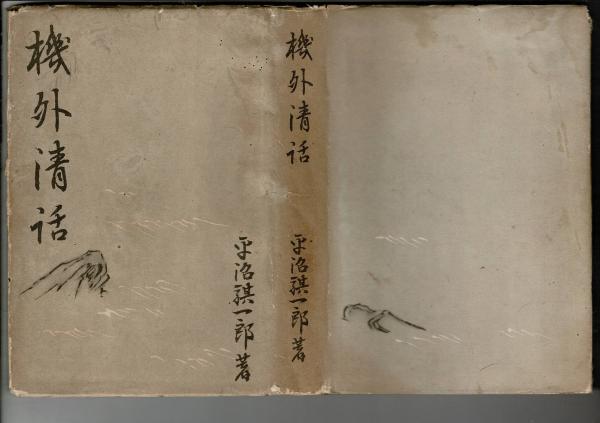 機外清話
平沼騏一郎著
機外清話
平沼騏一郎著